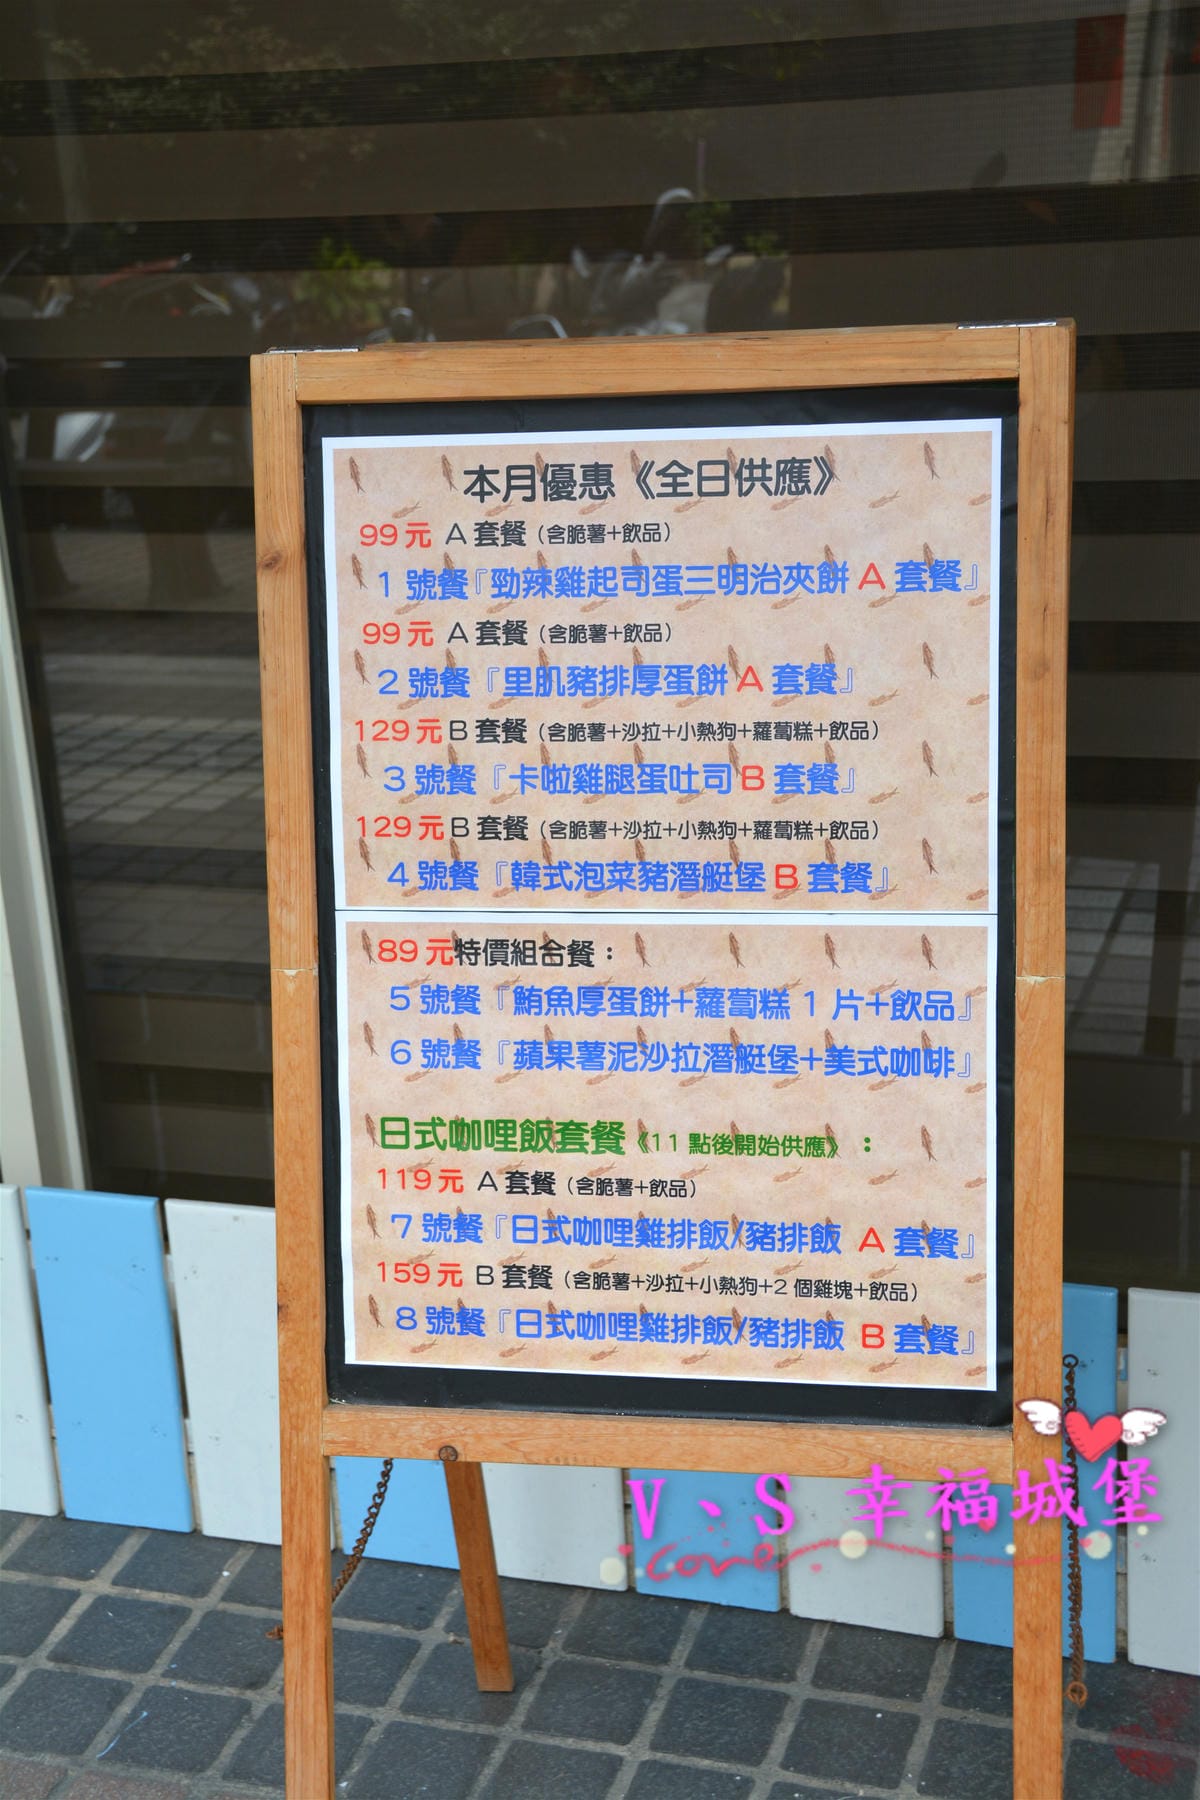 本月優惠《全日供應》
99元 A套餐（含脆薯+飲品）
1號餐『勁辣雞起司蛋三明治夾餅A套餐』
99元 A套餐（含脆薯+飲品）
2號餐『里肌豬排厚蛋餅A套餐』
129元B套餐（含脆薯+沙拉+小熱狗+蘿蔔糕+飲品）
3號餐『卡啦雞腿蛋吐司B套餐』
129元B套餐（含脆薯+沙拉+小熱狗+蘿蔔糕+飲品）
4號餐『韓式泡菜豬潛艇堡B套餐』
89元特價組合餐：
5號餐『鮪魚厚蛋餅+蘿蔔糕1片+飲品』
6號餐『蘋果薯泥沙拉潛艇堡+美式咖啡』
日式咖哩飯套餐《11點後開始供應》：
119元 A套餐（含脆薯+飲品）
7號餐『日式咖哩雞排飯/豬排飯 A套餐』
159元 B套餐（含脆薯+沙拉+小熱狗+2個雞塊+飲品）
8號餐『日式咖哩雞排飯/豬排飯 B套餐』
V、S 幸福城堡